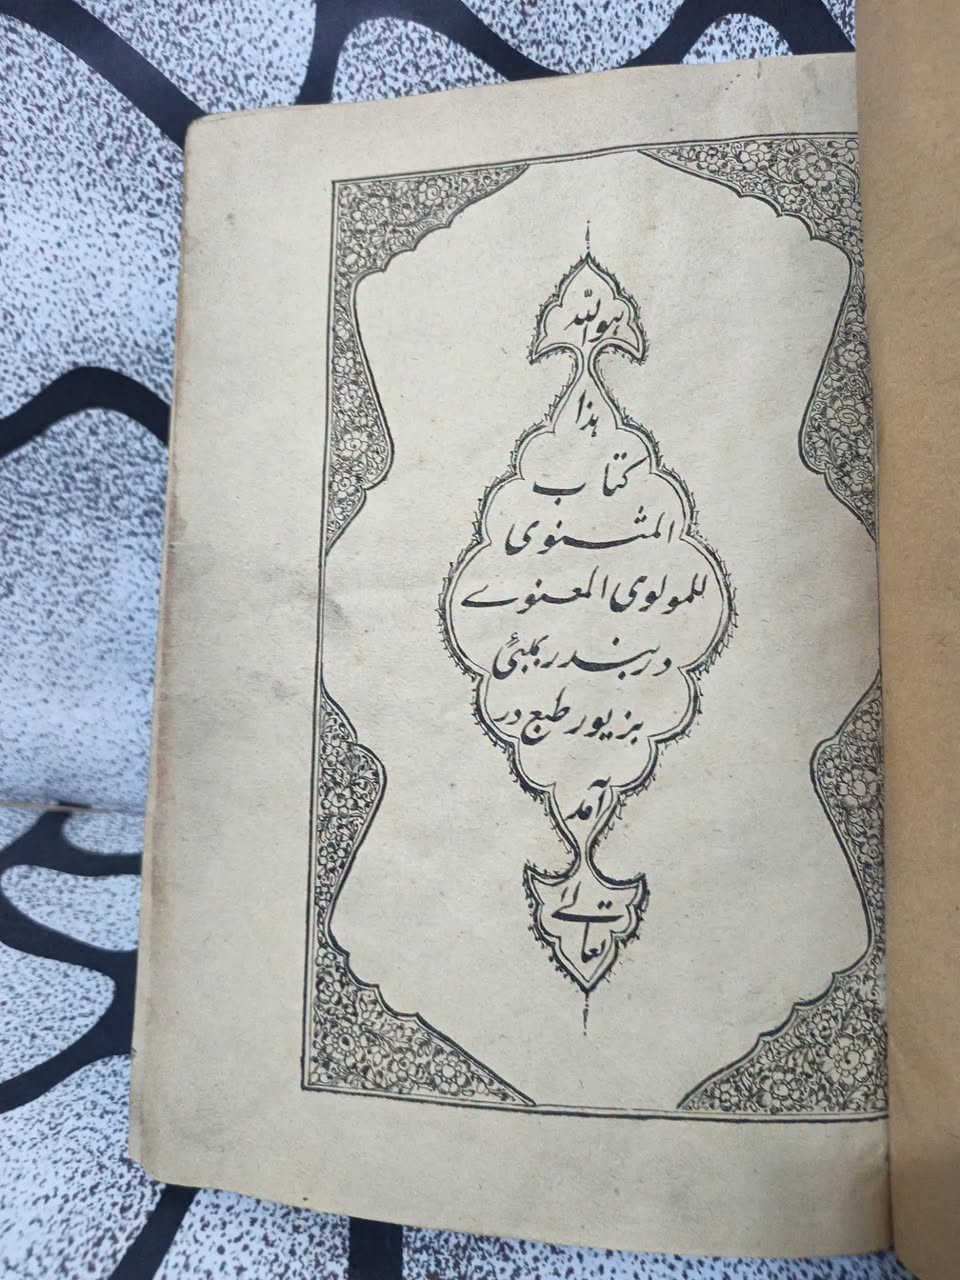 هوالله
هذا
کتاب
المثنوی
للمولوی المعنوے
در بندر بمبئی
بزیور طبع در
آمد
تعالے